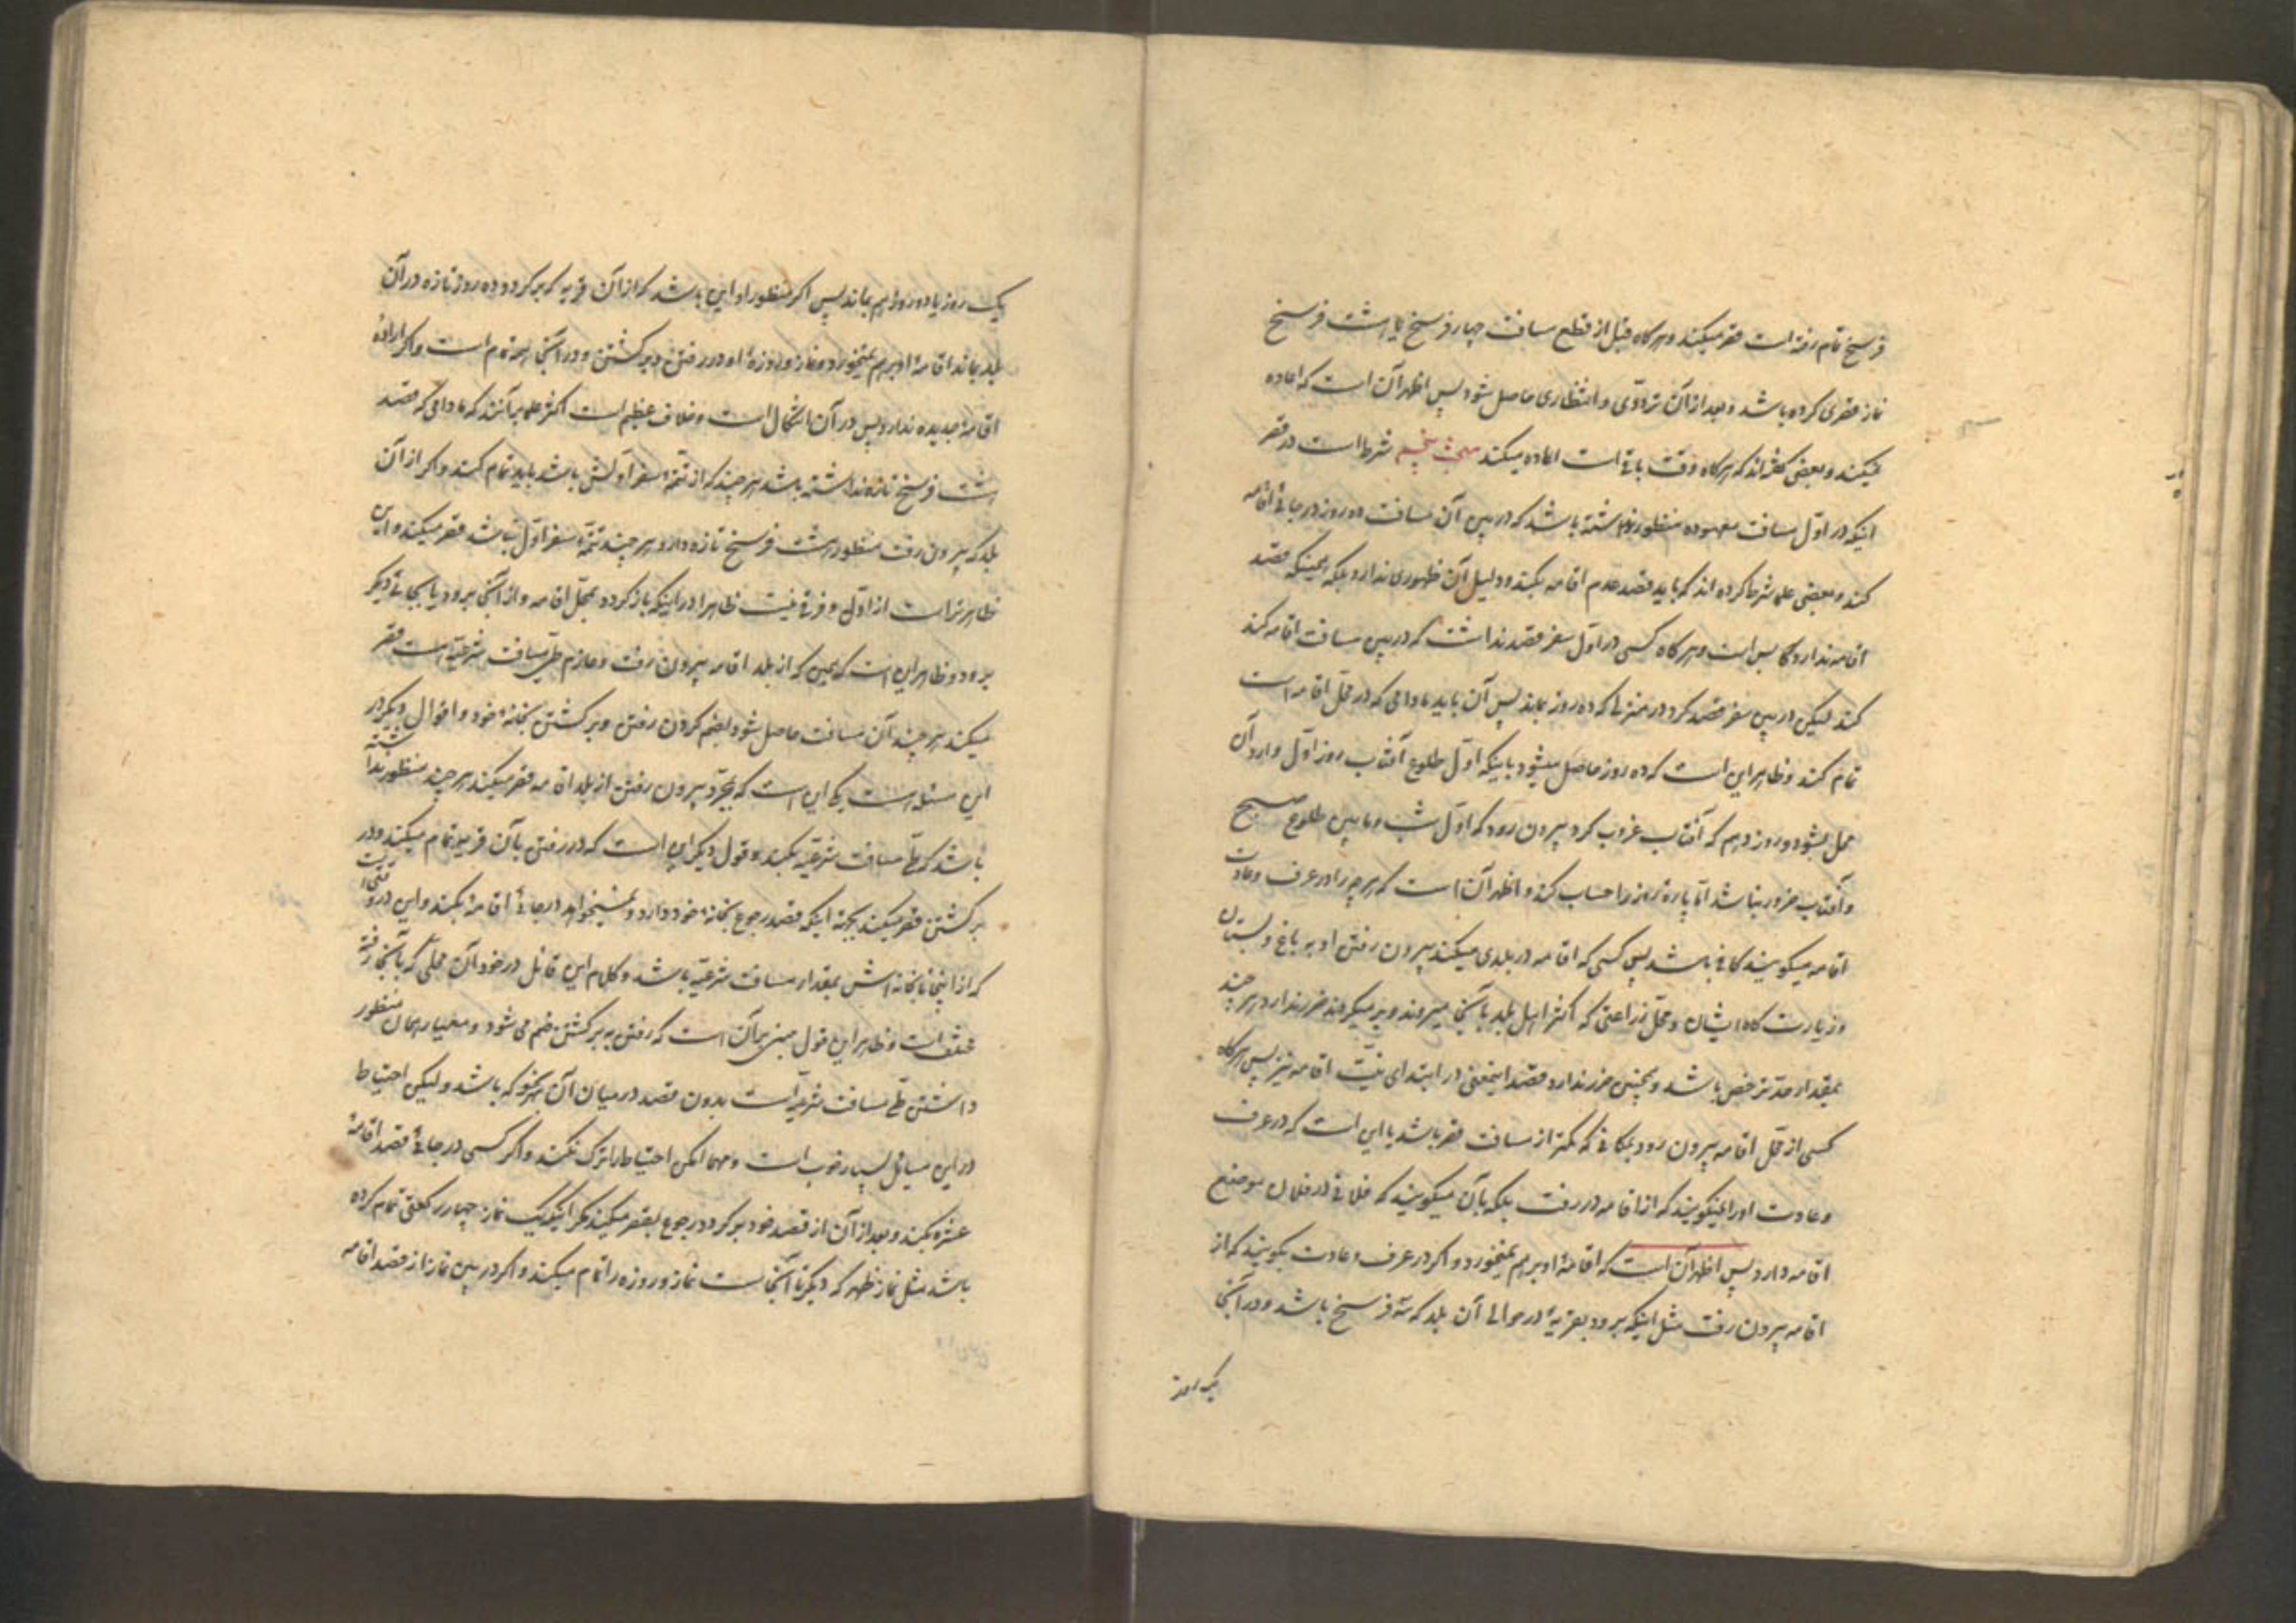 فرسخ تمام رفته است قصر میکند و هرگاه قبل از قطع مسافت چهار فرسخ یا هشت فرسخ
نماز قصری کرده باشد و بعد از آن تردّدی و انتظاری حاصل شود پس اظهر آن است که اعاده
نمیکند و بعضی گفته‌اند که هرگاه وقت باقی است اعاده میکند مبحث پنجم شرط است در قصر
اینکه در اوّل مسافت معهوده منظور نداشته باشد که در بین آن مسافت ده روز در جائی اقامه
کند و بعضی علما شرط کرده اند که باید قصد عدم اقامه بکند و دلیل آن ظهوری ندارد بلکه همینکه قصد
اقامه ندارد کا بس است و هرگاه کسی در اوّل سفر قصد نداشت که در بین مسافت اقامه کند
کند لیکن در بین سفر قصد کرد در منزلی که ده روز بماند پس آن باید مادامی که در محلّ اقامه است
تمام کند و ظاهر این است که ده روز حاصل میشود باینکه اوّل طلوع آفتاب روز اوّل وارد آن
محل بشود و روز دهم که آفتاب غروب کرد بیرون رود که اوّل شب و مابین طلوع صبح
و آفتاب ضرور نباشد امّا پاره روز را حساب کند و اظهر آن است که هر چه را در عرف و عادت
اقامه میگویند کافی باشد پس کسی که اقامه در بلدی میکند بیرون رفتن او به باغ و بستان
و زیارت گاه ایشان و محلّ زراعتی که اکثر اهل بلد بآنجا میروند و برمیگردند ضرر ندارد هر چند
بمقدار حدّ ترخص باشد و همچنین ضرر ندارد قصد اینمعنی در ابتدای نیّت اقامه نیز پس هرگاه
کسی از محلّ اقامه بیرون رود بمکانی که کمتر از مسافت قصر باشد یا این است که در عرف
و عادت او را نمیگویند که از اقامه در رفت بلکه بآن میگویند که فلانی در فلان موضع
اقامه دارد پس اظهر آن است که اقامهٔ او برهم نمیخورد و اگر در عرف و عادت بگویند که از
اقامه بیرون رفت مثل اینکه برود بقریهٔ در حوالی آن بلد که سه فرسخ باشد و در آنجا
یک روز
یک روز یا دو روز هم بماند پس اگر منظور او این باشد که از آن قریه که برگردد ده روز تازه در آن
بلد بماند اقامهٔ او برهم نمیخورد و نماز و روزهٔ او در رفتن و برگشتن و در آنجا همه تمام است و اگر ارادهٔ
اقامهٔ جدیده ندارد پس در آن اشکال است و خلاف عظیم است اکثر علما برآنند که مادامی که قصد
هشت فرسخ تازه نداشته باشد هر چند که از تتمّهٔ سفر اولش باشد باید تمام کند و اگر از آن
بلد که بیرون رفت منظور هشت فرسخ تازه دارد هر چند تتمّهٔ سفر اوّل نباشد قصر میکند و این
ظاهرتر است از اوّل و فرقی نیست ظاهرا در اینکه باز گردد بمحلّ اقامه و از آنجا برود یا بجائی دیگر
برود و ظاهر این است که همین که از بلد اقامه بیرون رفت و عازم طیّ مسافت شرعیّه است قصر
میکند هر چند آن مسافت حاصل شود بضمّ کردن رفتن و برگشتن بخانهٔ خود و اقوال دیگر در
این مسئله است یکی این است که بمجرّد بیرون رفتن از بلد اقامه قصر میکند هر چند منظور نداشته
باشد که طیّ مسافت شرعیّه بکند و قول دیگر این است که در رفتن بآن قریه تمام میکند و در
برگشتن قصر میکند بجهة اینکه قصد رجوع بخانهٔ خود دارد و نمیخواهد در جائی اقامه بکند و این در وقتی است
که از اینجا تا بخانه‌اش بمقدار مسافت شرعیّه باشد و کلام این قائل در خود آن محلّی که بآنجا رفته
مختلف است و ظاهر این قول مبنی بر آن است که رفتن به برگشتن ضم می شود و معیار همان منظور
داشتن طیّ مسافت شرعیّه است بدون قصد در میان آن بهر نحو که باشد و لیکن احتیاط
در این مسایل بسیار خوب است و مهما امکن احتیاط را ترک نکند و اگر کسی در جائی قصد اقامهٔ
عشره بکند و بعد از آن از قصد خود برگردد رجوع بقصر میکند مگر اینکه یک نماز چهار رکعتی تمام کرده
باشد مثل نماز ظهر که دیگر تا آنجا است نماز و روزه را تمام میکند و اگر در بین نماز از قصد اقامه